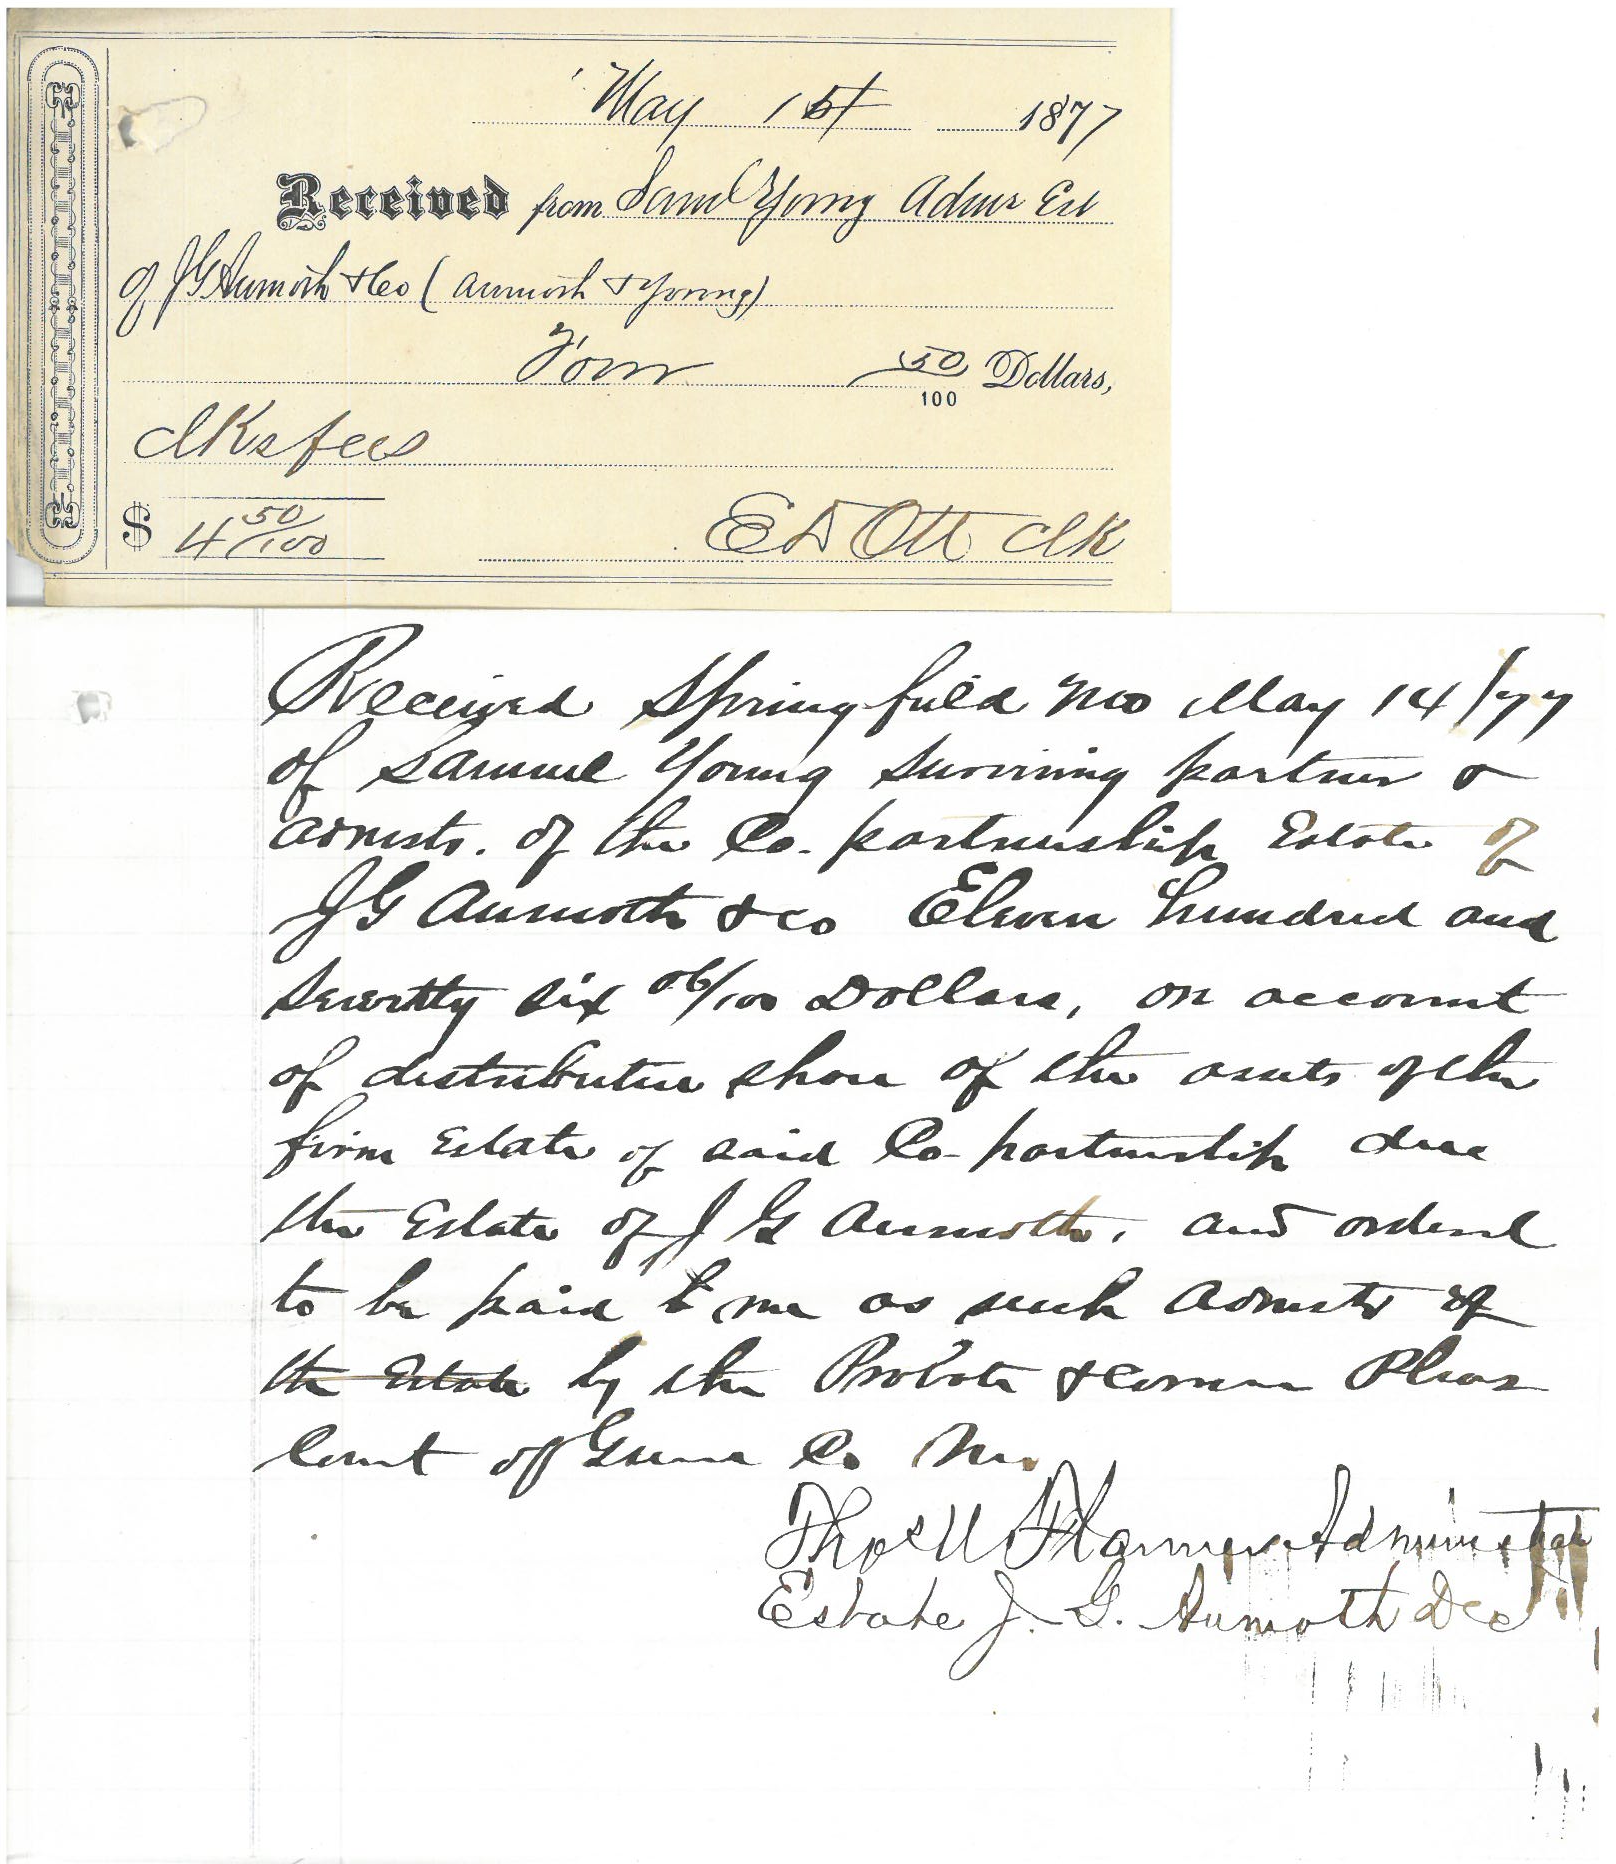 May 15 1877
Received from Saml Young Admr Est
of J G Aumoth & Co (Aumoth & Young)
Four 50/100 Dollars,
clks fees
$ 4 50/100 E D Ott clk
Received Springfield Mo May 14/77
of Samuel Young surviving partner &
admstr. of the Co-partnership Estate of
J G Aumoth & Co Eleven hundred and
seventy six 06/100 Dollars, on account
of distributive share of the assets of the
firm Estate of said Co-partnership due
the Estate of J G Aumoth, and ordered
to be paid to me as such Admstr of
the Estate by the Probate & Common Pleas
Court of Greene Co Mo.
Thos W Flanner Administrator
Estate J. G. Aumoth Dec